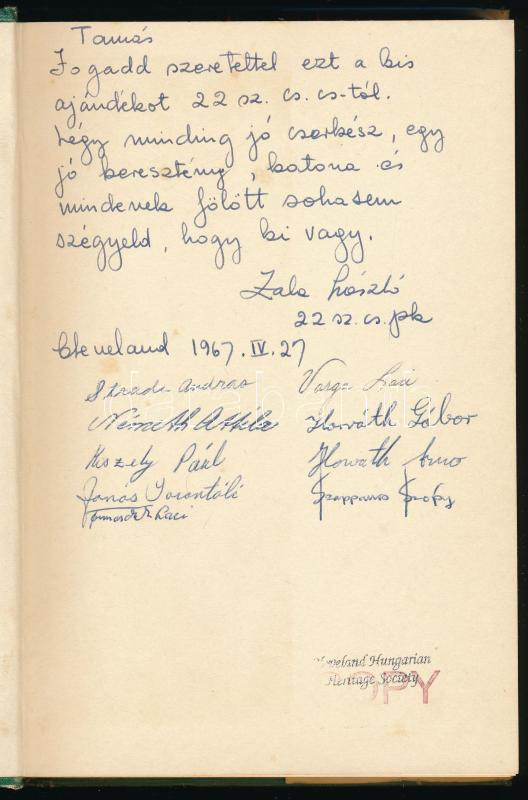 Tamás
Fogadd szeretettel ezt a kis
ajándékot 22 sz. cs. cs-tól.
Légy minding jó cserkész, egy
jó keresztény, katona és
mindenek fölött sohasem
szégyeld, hogy ki vagy.
Zala László
22 sz. cs. pk
Cleveland 1967. IV. 27
András Varga Laci
Németh Attila Horváth Gábor
Kiszely Pául Horváth
János
Laci
Cleveland Hungarian
Heritage Society
COPY